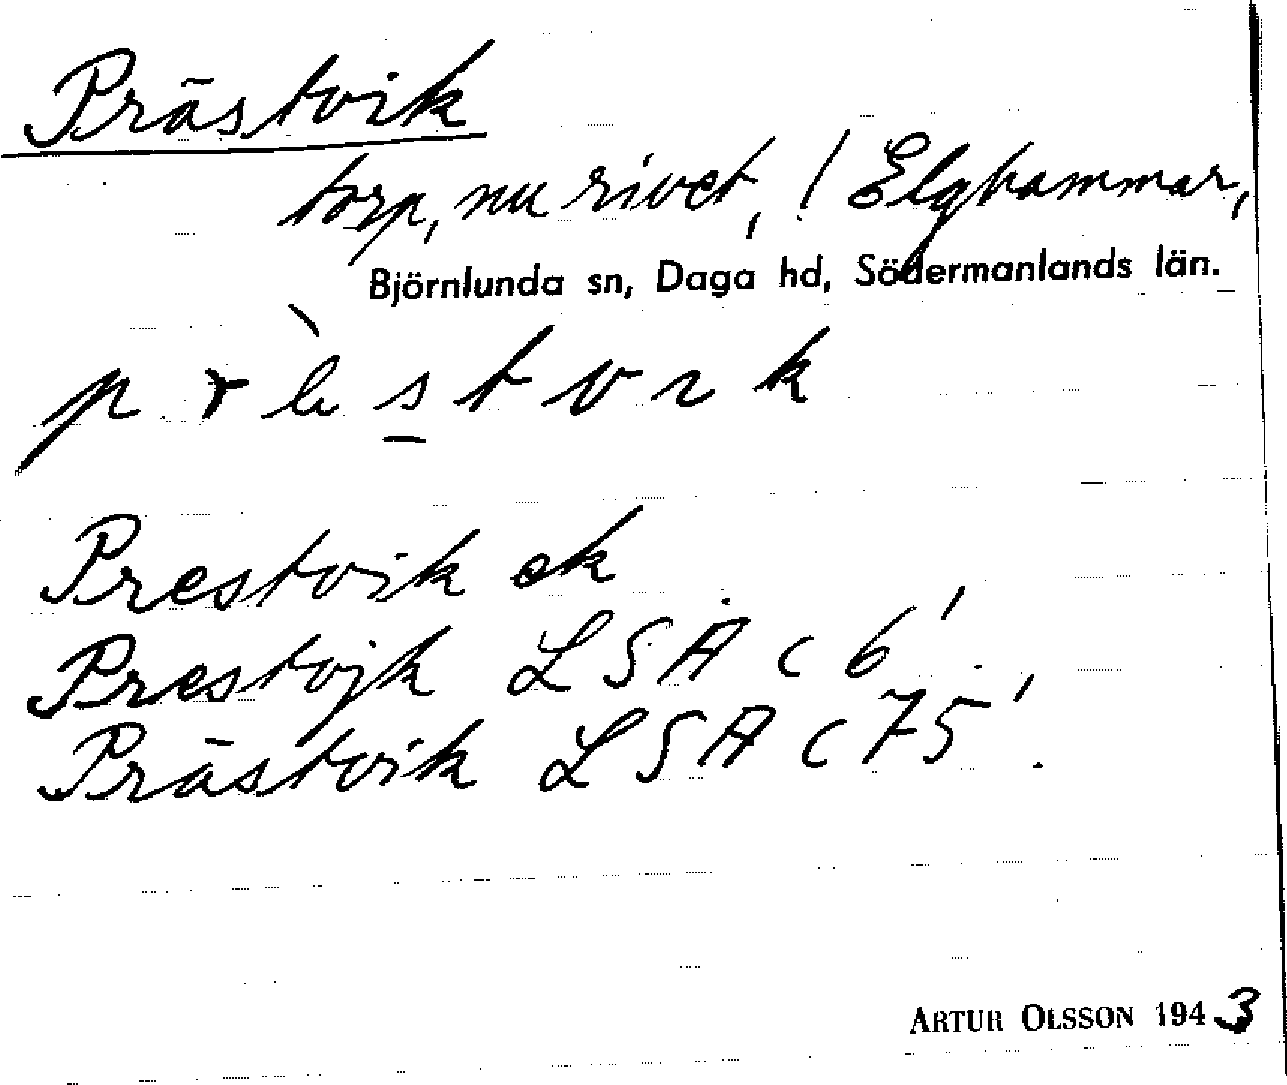 Prästvik
torp, nu rivet, / Elghammar,
Björnlunda sn, Daga hd, Södermanlands län.
Prestvik ek
Prestvjk LSA c 6'
Prästvik LSA c 75'.
ARTUR OLSSON 1943